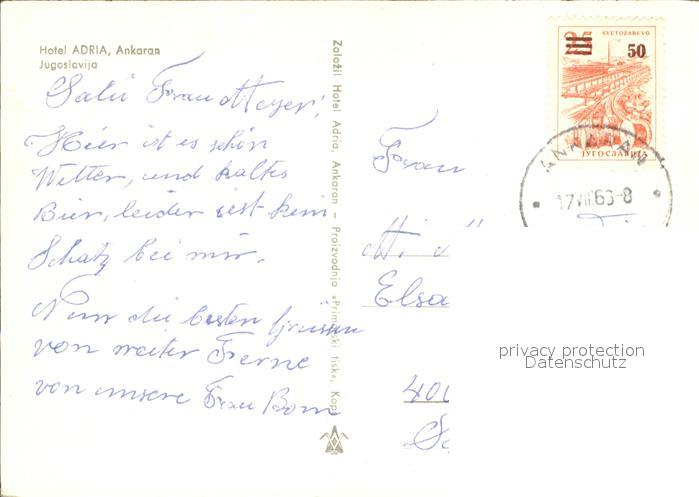 Hotel ADRIA, Ankaran
Jugoslavija
Salü Frau Meyer!
Hier ist es schön
Wetter, und kaltes
Bier, leider ist kein
Schatz bei mir.
Nun die besten Grüssen
von weiter Ferne
von unsere Frau Bom
Založil Hotel Adria, Ankaran – Proizvodnja »Primorski tisk«, Kop
СВЕТОЗАРЕВО
25
50
ЈУГОСЛАВИЈА
ANKARAN
17VIII66-8
Frau
Elsa
400
privacy protection
Datenschutz